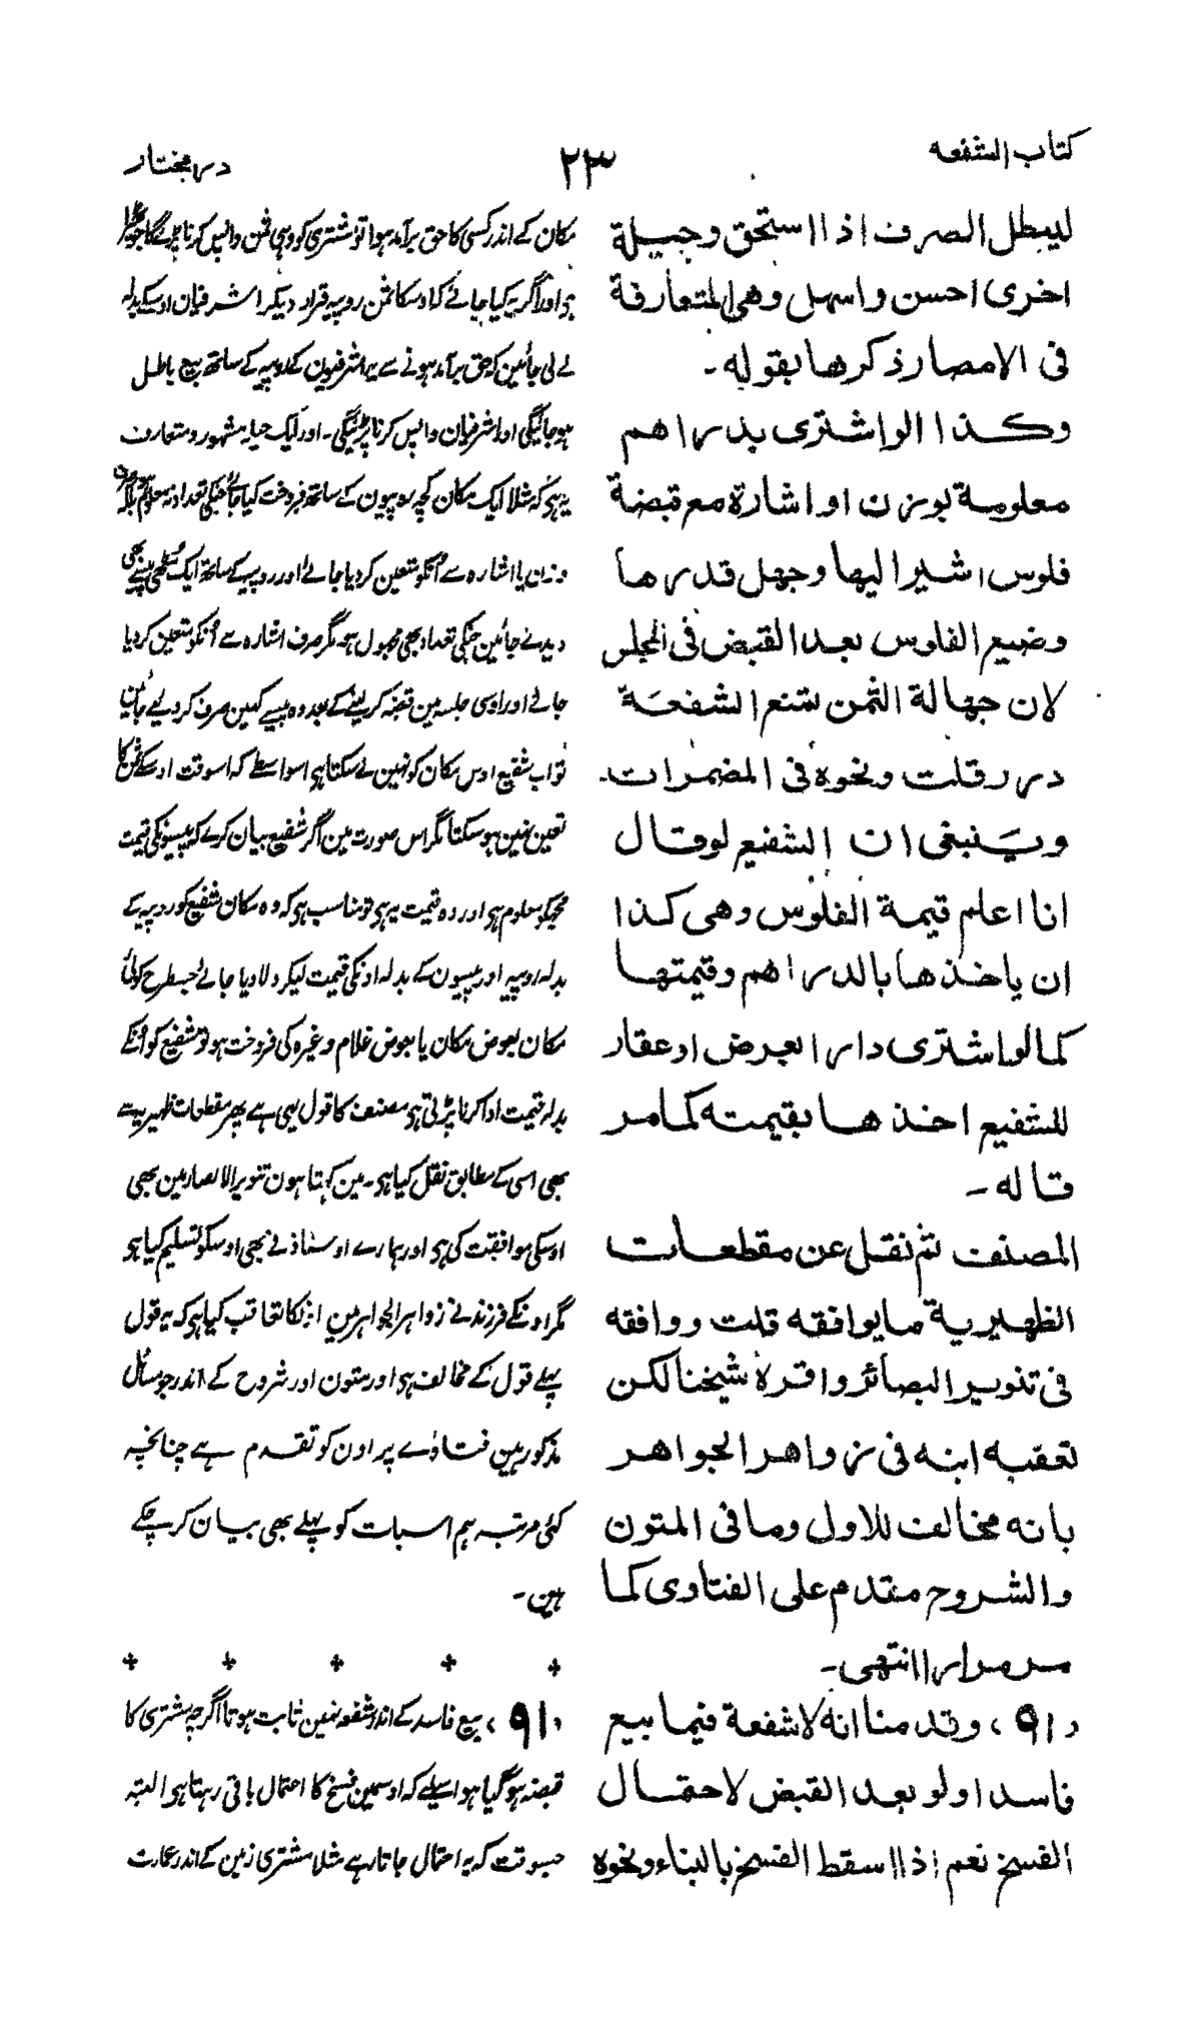 کتاب الشفعه
۲۳
درمختار
لیبطل الصرف اذا استحق وحیلة
اخری احسن واسهل وهی المتعارفة
فی الامصار ذکرها بقوله -
وکذا لو اشتری بدراهم
معلومة بوزن او اشارة مع قبضة
فلوس اشیر الیها وجهل قدرها
وضیع الفلوس بعد القبض فی المجلس
لان جهالة الثمن تمنع الشفعة
درر قلت ونحوه فی المضمرات۔
وینبغی ان الشفیع لو قال
انا اعلم قیمة الفلوس وهی کذا
ان یاخذها بالدراهم وقیمتها
کما لو اشتری دارا بعرض او عقار
للشفیع اخذها بقیمته کما مر
قاله -
المصنف ثم نقل عن مقطعات
الظهیریة ما یوافقه قلت ووافقه
فی تنویر البصائر واقره شیخنا لکن
تعقبه ابنه فی زواهر الجواهر
بانه مخالف للاول وما فی المتون
والشروح مقدم علی الفتاوی کما
مر مرارا انتهی -
(۹۱) وقدمنا انه لا شفعة فیما بیع
فاسدا ولو بعد القبض لاحتمال
الفسخ نعم اذا سقط الفسخ بالبناء ونحوه
مکان کے اندر کسی کا حق برآمد ہوا تو مشتری کو وہی ثمن واپس کرنا پڑے گا
ہو اور اگر یہ کیا جائے کہ اوسکا ثمن روپیہ قرار دیکر اشرفیان اوسکے بدلہ
لے لی جائین کہ حق برآمد ہونے سے یہ اشرفیون کے روپیہ کے ساتھ بیع باطل
ہوجائیگی اور اشرفیان واپس کرنا پڑینگی۔ اور ایک حیلہ مشہور و متعارف
یہ ہی کہ مثلا ایک مکان کچھ روپیون کے ساتھ فروخت کیا جائے جنکی تعداد معلوم ہو بلکہ
وزن یا اشارہ سے اُنکو متعین کردیا جائے اور روپیہ کے ساتھ ایک مُٹھی پیسے بھی
دیدئے جائین جنکی تعداد بھی مجہول ہو۔ مگر صرف اشارہ سے اُنکو متعین کردیا
جائے اور اوسی جلسہ مین قبضہ کرلینے کے بعد وہ پیسے کہین صرف کردیے جائین
تو اب شفیع اوس مکان کو نہین لے سکتا ہی اسواسطے کہ اسوقت اوسکے ثمن کا
تعین نہین ہوسکتا مگر اس صورت مین اگر شفیع بیان کرے کہ پیسونکی قیمت
مجھکو معلوم ہی اور وہ قیمت یہ ہی تو مناسب ہی کہ وہ مکان شفیع کو روپیہ کے
بدلہ روپیہ اور پیسیون کے بدلہ اونکی قیمت لیکر دلا دیا جائے جسطرح کوئی
مکان بعوض مکان یا بعوض غلام وغیرہ کی فروخت ہو تو شفیع کو اُنکے
بدلہ قیمت ادا کرنا پڑتی ہی مصنف کا قول یہی ہے پھر مقطعات ظہیریہ سے
بھی اسی کے مطابق نقل کیا ہی۔ مین کہتا ہون تنویر الابصار مین بھی
اوسکی موافقت کی ہی اور ہمارے اوستاذ نے بھی اوسکو تسلیم کیا ہو
مگر اونکے فرزند نے زواہر الجواہر مین انکا تعاقب کیا ہی کہ یہ قول
پہلے قول کے مخالف ہی اور متون اور شروح کے اندر جو مسائل
مذکور ہین فتاوے پر اون کو تقدم ہے چنانچہ
کئی مرتبہ ہم اسبات کو پہلے بھی بیان کرچکے
ہین۔
(۹۱) بیع فاسد کے اندر شفعہ نہین ثابت ہوتا اگرچہ مشتری کا
قبضہ ہوگیا ہو اسیلے کہ اوسمین فسخ کا احتمال باقی رہتا ہو البتہ
جسوقت کہ یہ احتمال جاتا رہے مثلا مشتری زمین کے اندر عمارت